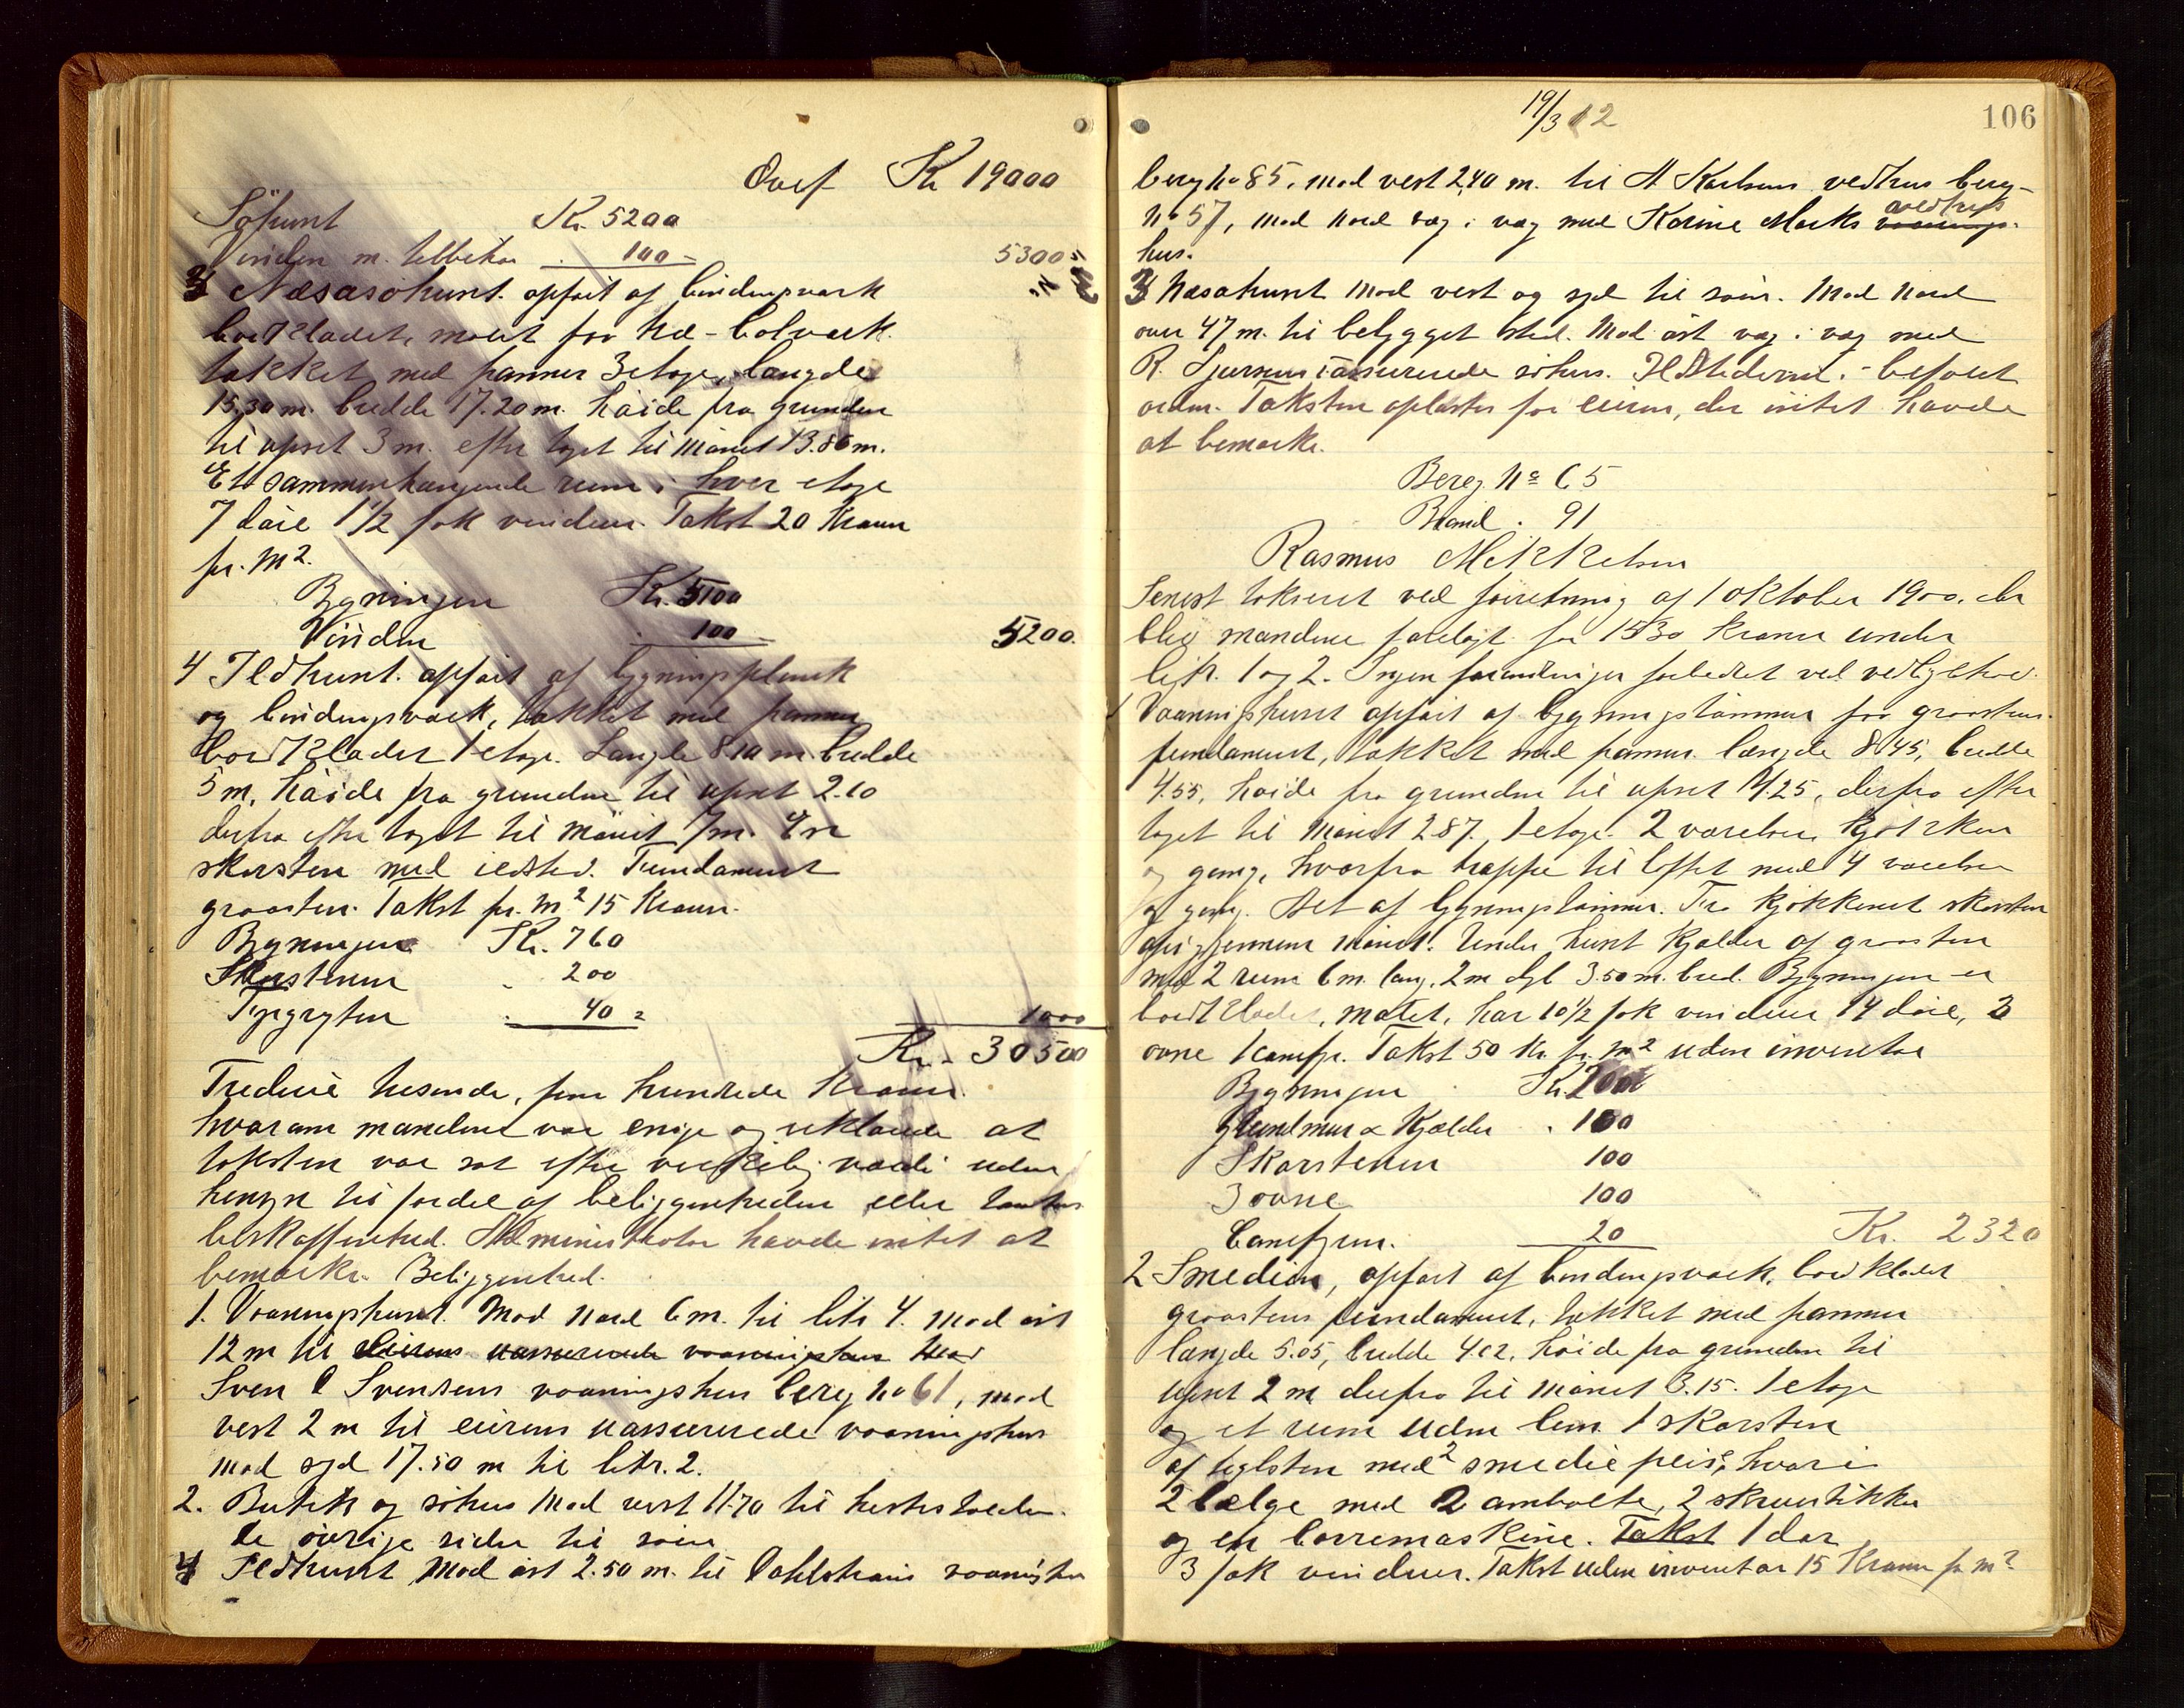 Overf Kr 19000
Söhuset Kr. 5200
Vinden m. tilbehør . 100 = 5300
3 Næsasöhuset. opført af bindingsværk
bordklædet, malet paa træ-bolværk.
tækket med panner 3 etage, længde
15,30 m. bredde 17.20 m. høide fra grunden
til opset 3 m. efter taget til mønet 13.80 m.
Et sammenhængende rum i hver etage
7 døre 1 1/2 fok vinduer. Takst 20 Kroner
pr. m2.
Bygningen Kr. 5100
Vinden . 100 = 5200.
4 Ildhuset. opført af bygningsplank
og bindingsværk, tækket med panner
bordklædet 1 etage. Længde 8.10 m. bredde
5 m, høide fra grunden til opset 2.10
derfra efter taget til mønet 7 m. En
skorsten med ildsted. Fundament
graasten. Takst pr. m2 15 Kroner.
Bygningen Kr. 760
Skorstenen . 200
. 40 = 1000
Kr. 30500
Tredive tusende, fem hundrede Kroner.
hvorom mændene var enige og erklærede at
taksten var sat efter virkelig værdi uden
hensyn til fordel af beliggenheden eller tomtens
beskaffenhed. Administrator havde intet at
bemærke. Beliggenhed.
1. Vaaningshuset. Mod nord 6 m. til litr 4. mod øst
12 m til eierens uassurerede vaaningshus
Sven O Svensens vaaningshus bereg no 61, mod
vest 2 m til eierens uassurerede vaaningshus
mod syd 17.50 m til litr. 2.
2. Butik og söhus mod vest 11.70 til
de øvrige sider til søen
4 Ildhuset mod øst 2.50 m. til Dahlstrøms vaaningshus
19/3 12
106
bereg no 85. mod vest 2,40 m. til A Karlsens vedhus bereg-
no 57, mod nord væg i væg med Karine Marks vaanings- vedhus
hus.
3 Næsahuset mod vest og syd til søen. Mod nord
over 47 m. til bebygget sted. Mod øst væg i væg med
R. uassurerede söhus. Ildstederne befaret
orden. Taksten oplæstes for eieren, der intet havde
at bemærke.
Bereg No 65
Brand . 91
Rasmus Mikkelsen
Senest takseret ved forretning af 1 oktober 1900. der
blev mændene forelagt for 1530 Kroner under
litr. 1 og 2. Ingen forandringer forbedret ved vedligehold.
1 Vaaningshuset opført af bygningstømmer paa graastens-
fundament, tækket med panner. længde 8.45, bredde
4.55, høide fra grunden til opset 4.25, derfra efter
taget til mønet 2.87. 1 etage. 2 værelser, kjøkken
og gang, hvorfra trappe til loftet med 4 værelser
og gang. Alt af bygningstømmer. Fra kjøkkenet skorsten
op igjennem mønet. Under huset kjælder af graasten
med 2 rum 6 m. lang, 2 m dyb 3.50 m. bred. Bygningen er
bordklædet, malet, har 10 1/2 fok vinduer 14 døre, 3
ovne 1 comfyr. Takst 50 Kr pr. m2 uden inventar
Bygningen Kr. 2000
Grundmur & Kjælder . 100
Skorstenen 100
3 ovne 100
Comfyren. 20 Kr. 2320
2 Smedien, opført af bindingsværk, bordklædet
graastens fundament, tækket med panner
længde 5.05, bredde 4.02, høide fra grunden til
opset 2 m derfra til mønet 3.15. 1 etage
og et rum uden lem 1 skorsten
af teglsten med 2 smedie peise, hvori
2 belge med 2 ambolte, 2 skruestikker
og en borremaskine. Takst 1 dør
3 fok vinduer. Takst uden inventar 15 Kroner pr m2